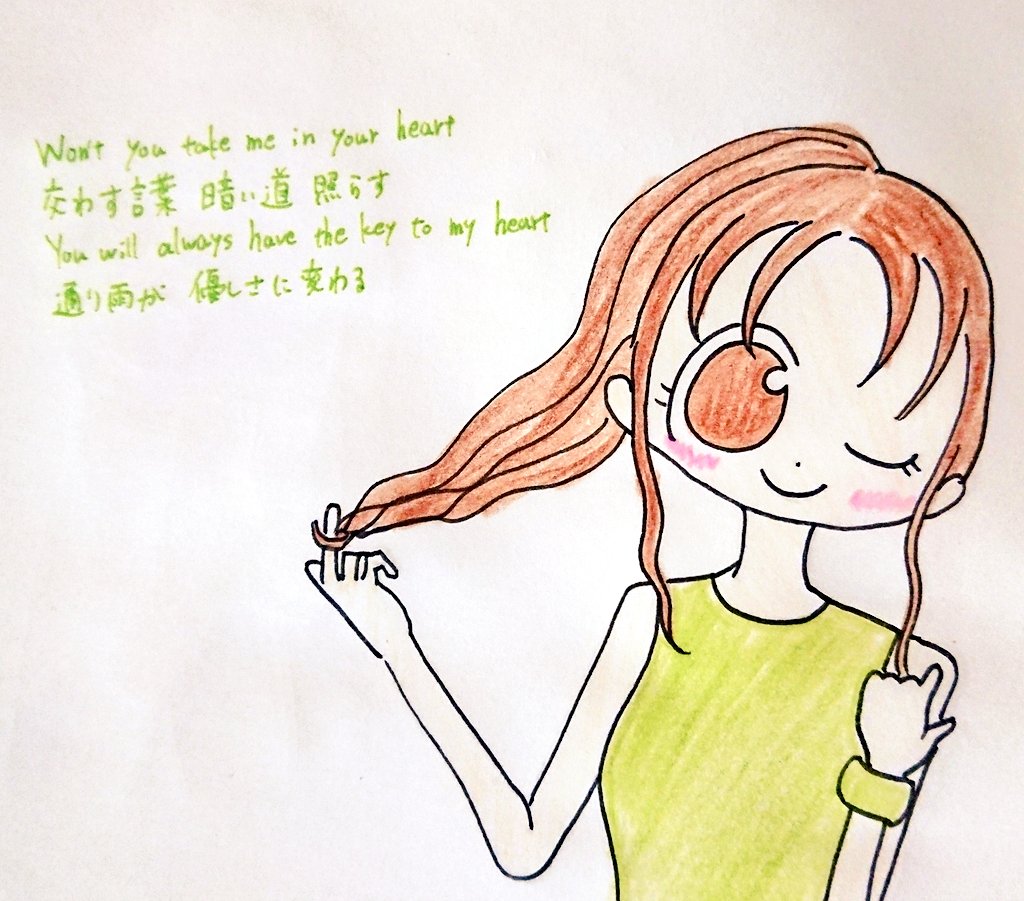 Won't you take me in your heart
交わす言葉 暗い道 照らす
You will always have the key to my heart
通り雨が 優しさに変わる